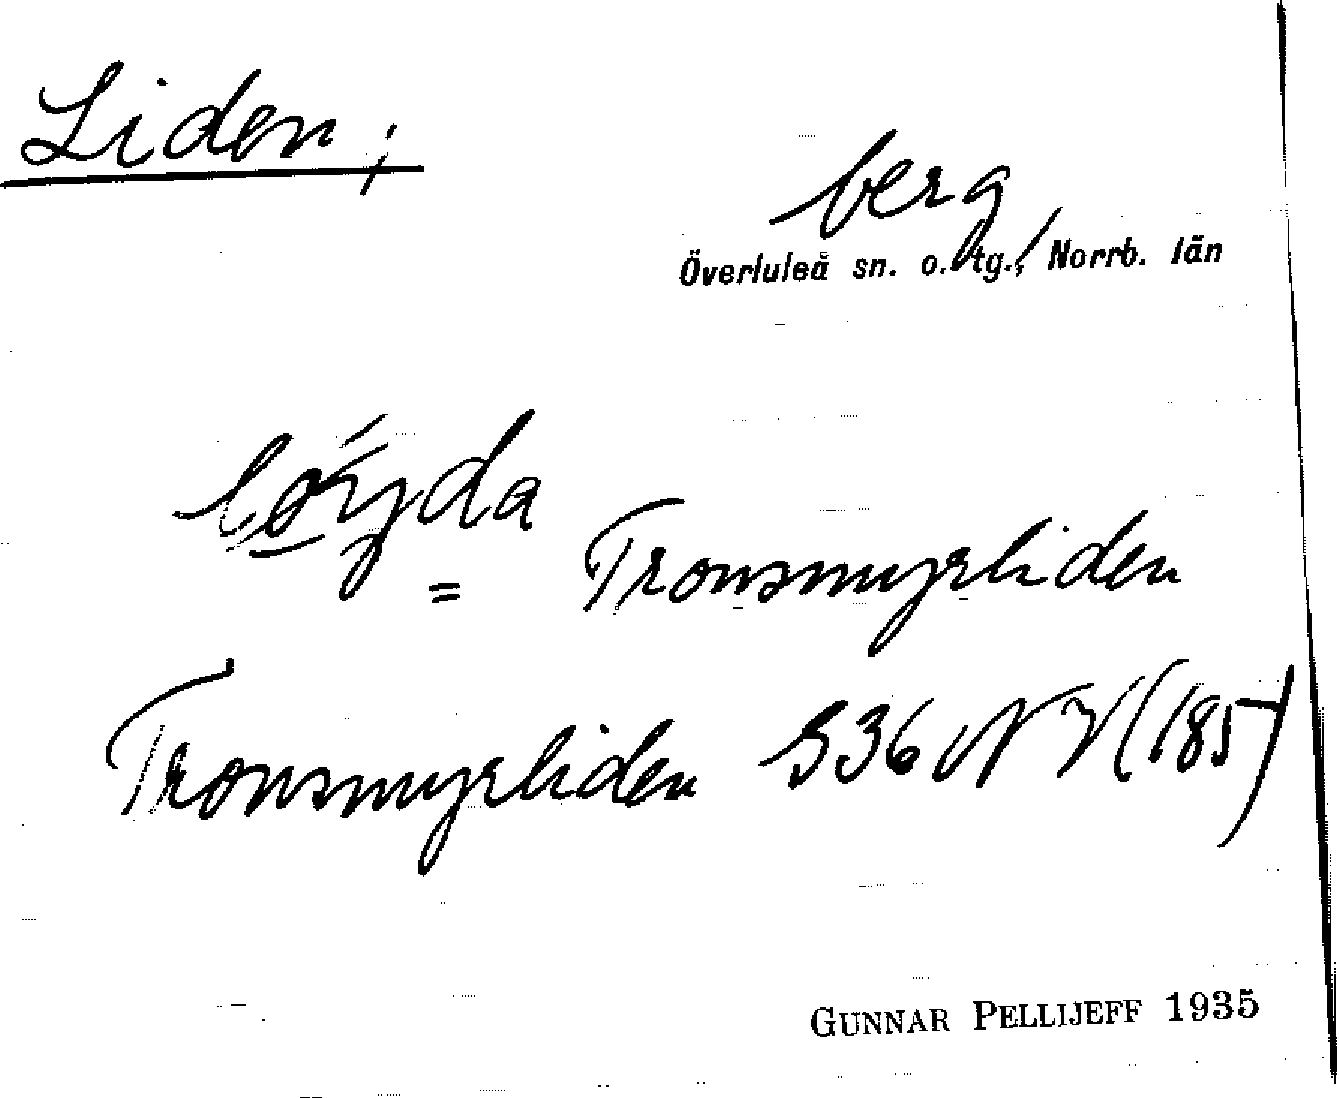 Liden;
berg
Överluleå sn. o. tg., Norrb. län
= Tronsmyrliden
Tronsmyrliden S36 NV (185)
GUNNAR PELLIJEFF 1935